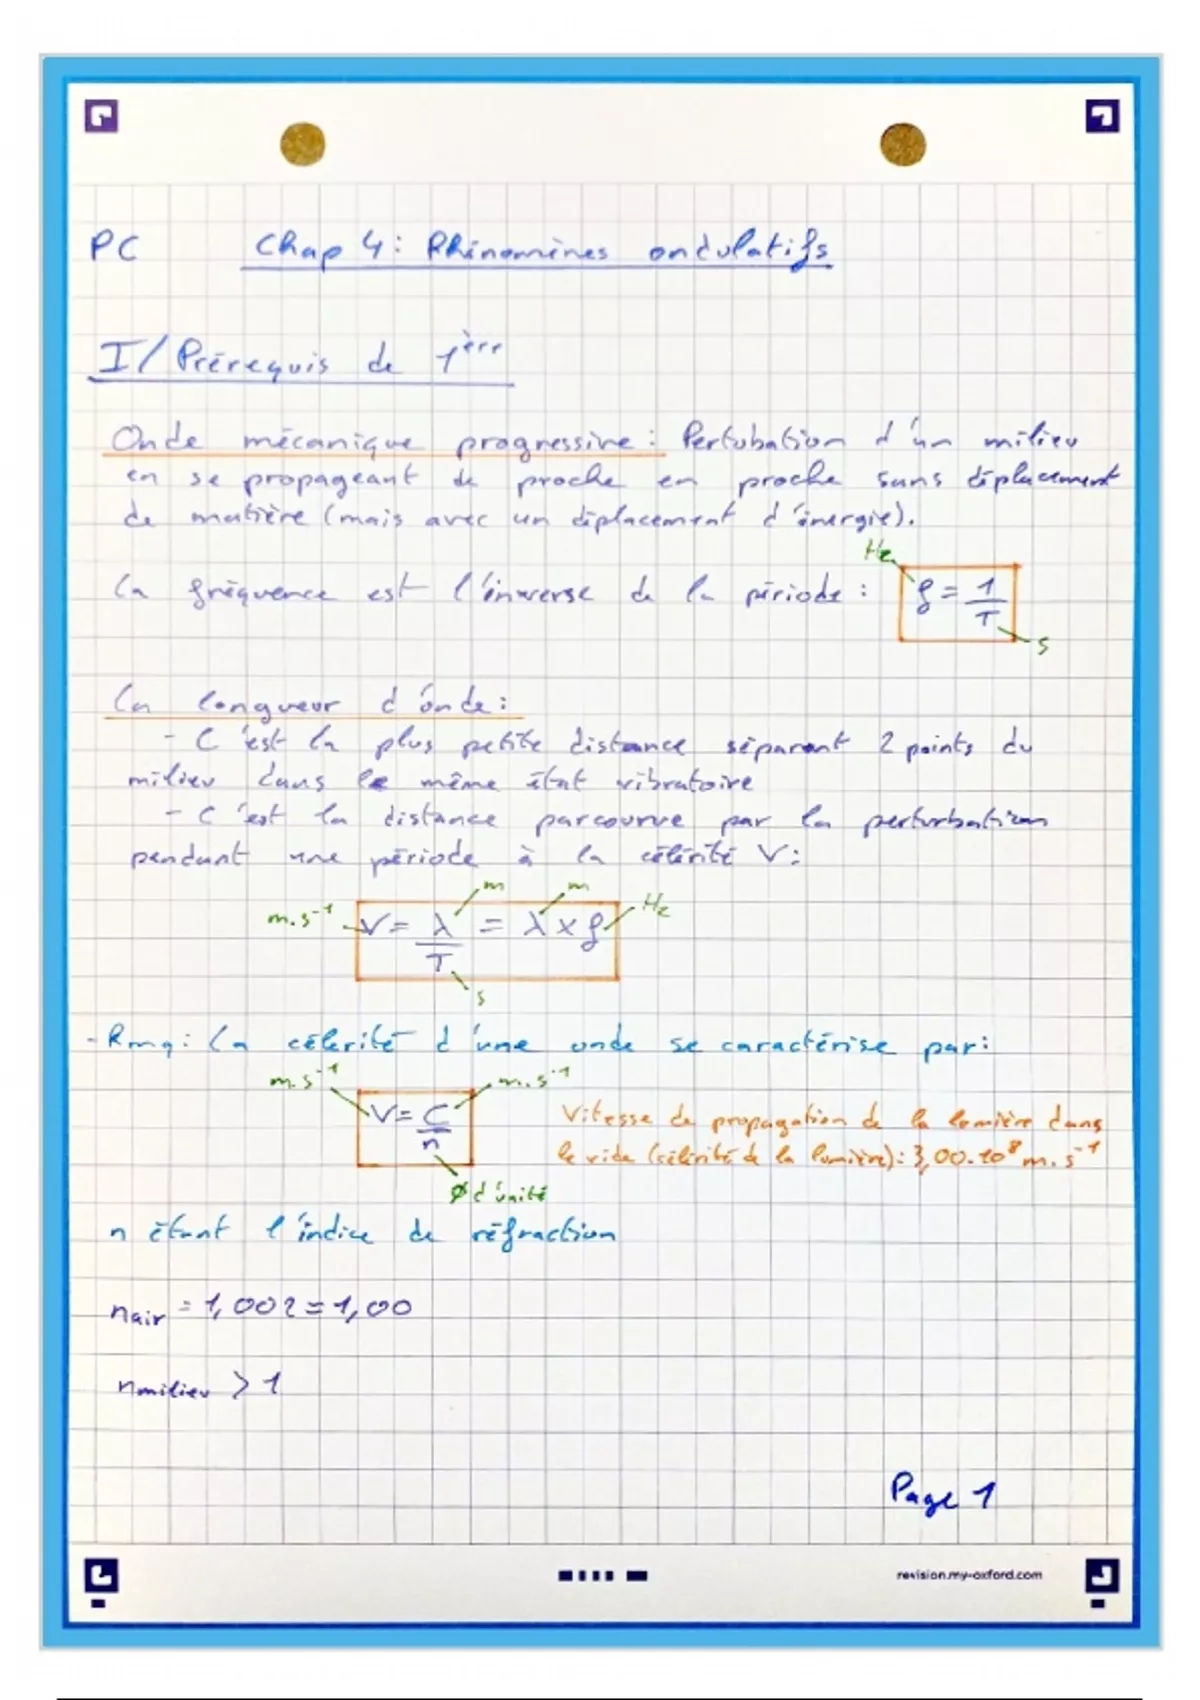 PC Chap 4: Phénomènes ondulatifs
I/ Prérequis de 1ère
Onde mécanique progressive: Pertubation d'un milieu
en se propageant de proche en proche sans déplacement
de matière (mais avec un déplacement d'énergie).
Hz
La fréquence est l'inverse de la période : f = 1/T
s
La longueur d'onde:
- C'est la plus petite distance séparant 2 points du
milieu dans le même état vibratoire
- C'est la distance parcourue par la perturbation
pendant une période à la célérité V:
m m
m.s⁻¹ V = λ/T = λ x f Hz
s
- Rmq: La célérité d'une onde se caractérise par:
m.s⁻¹ m.s⁻¹
V = C/n
Vitesse de propagation de la lumière dans
le vide (célérité de la lumière): 3,00.10⁸ m.s⁻¹
Ø d'unité
n étant l'indice de réfraction
nair = 1,002 = 1,00
nmilieu > 1
Page 1
revision.my-oxford.com